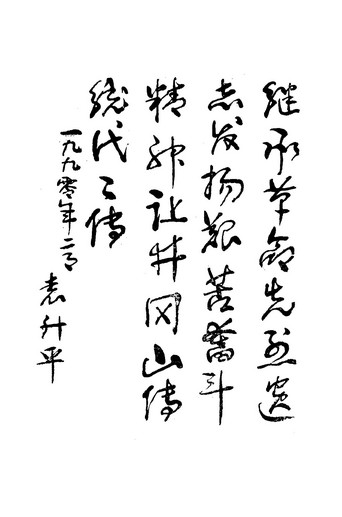 继承革命先烈遗
志发扬艰苦奋斗
精神让井冈山传
统代々传
一九九零年二月
袁升平